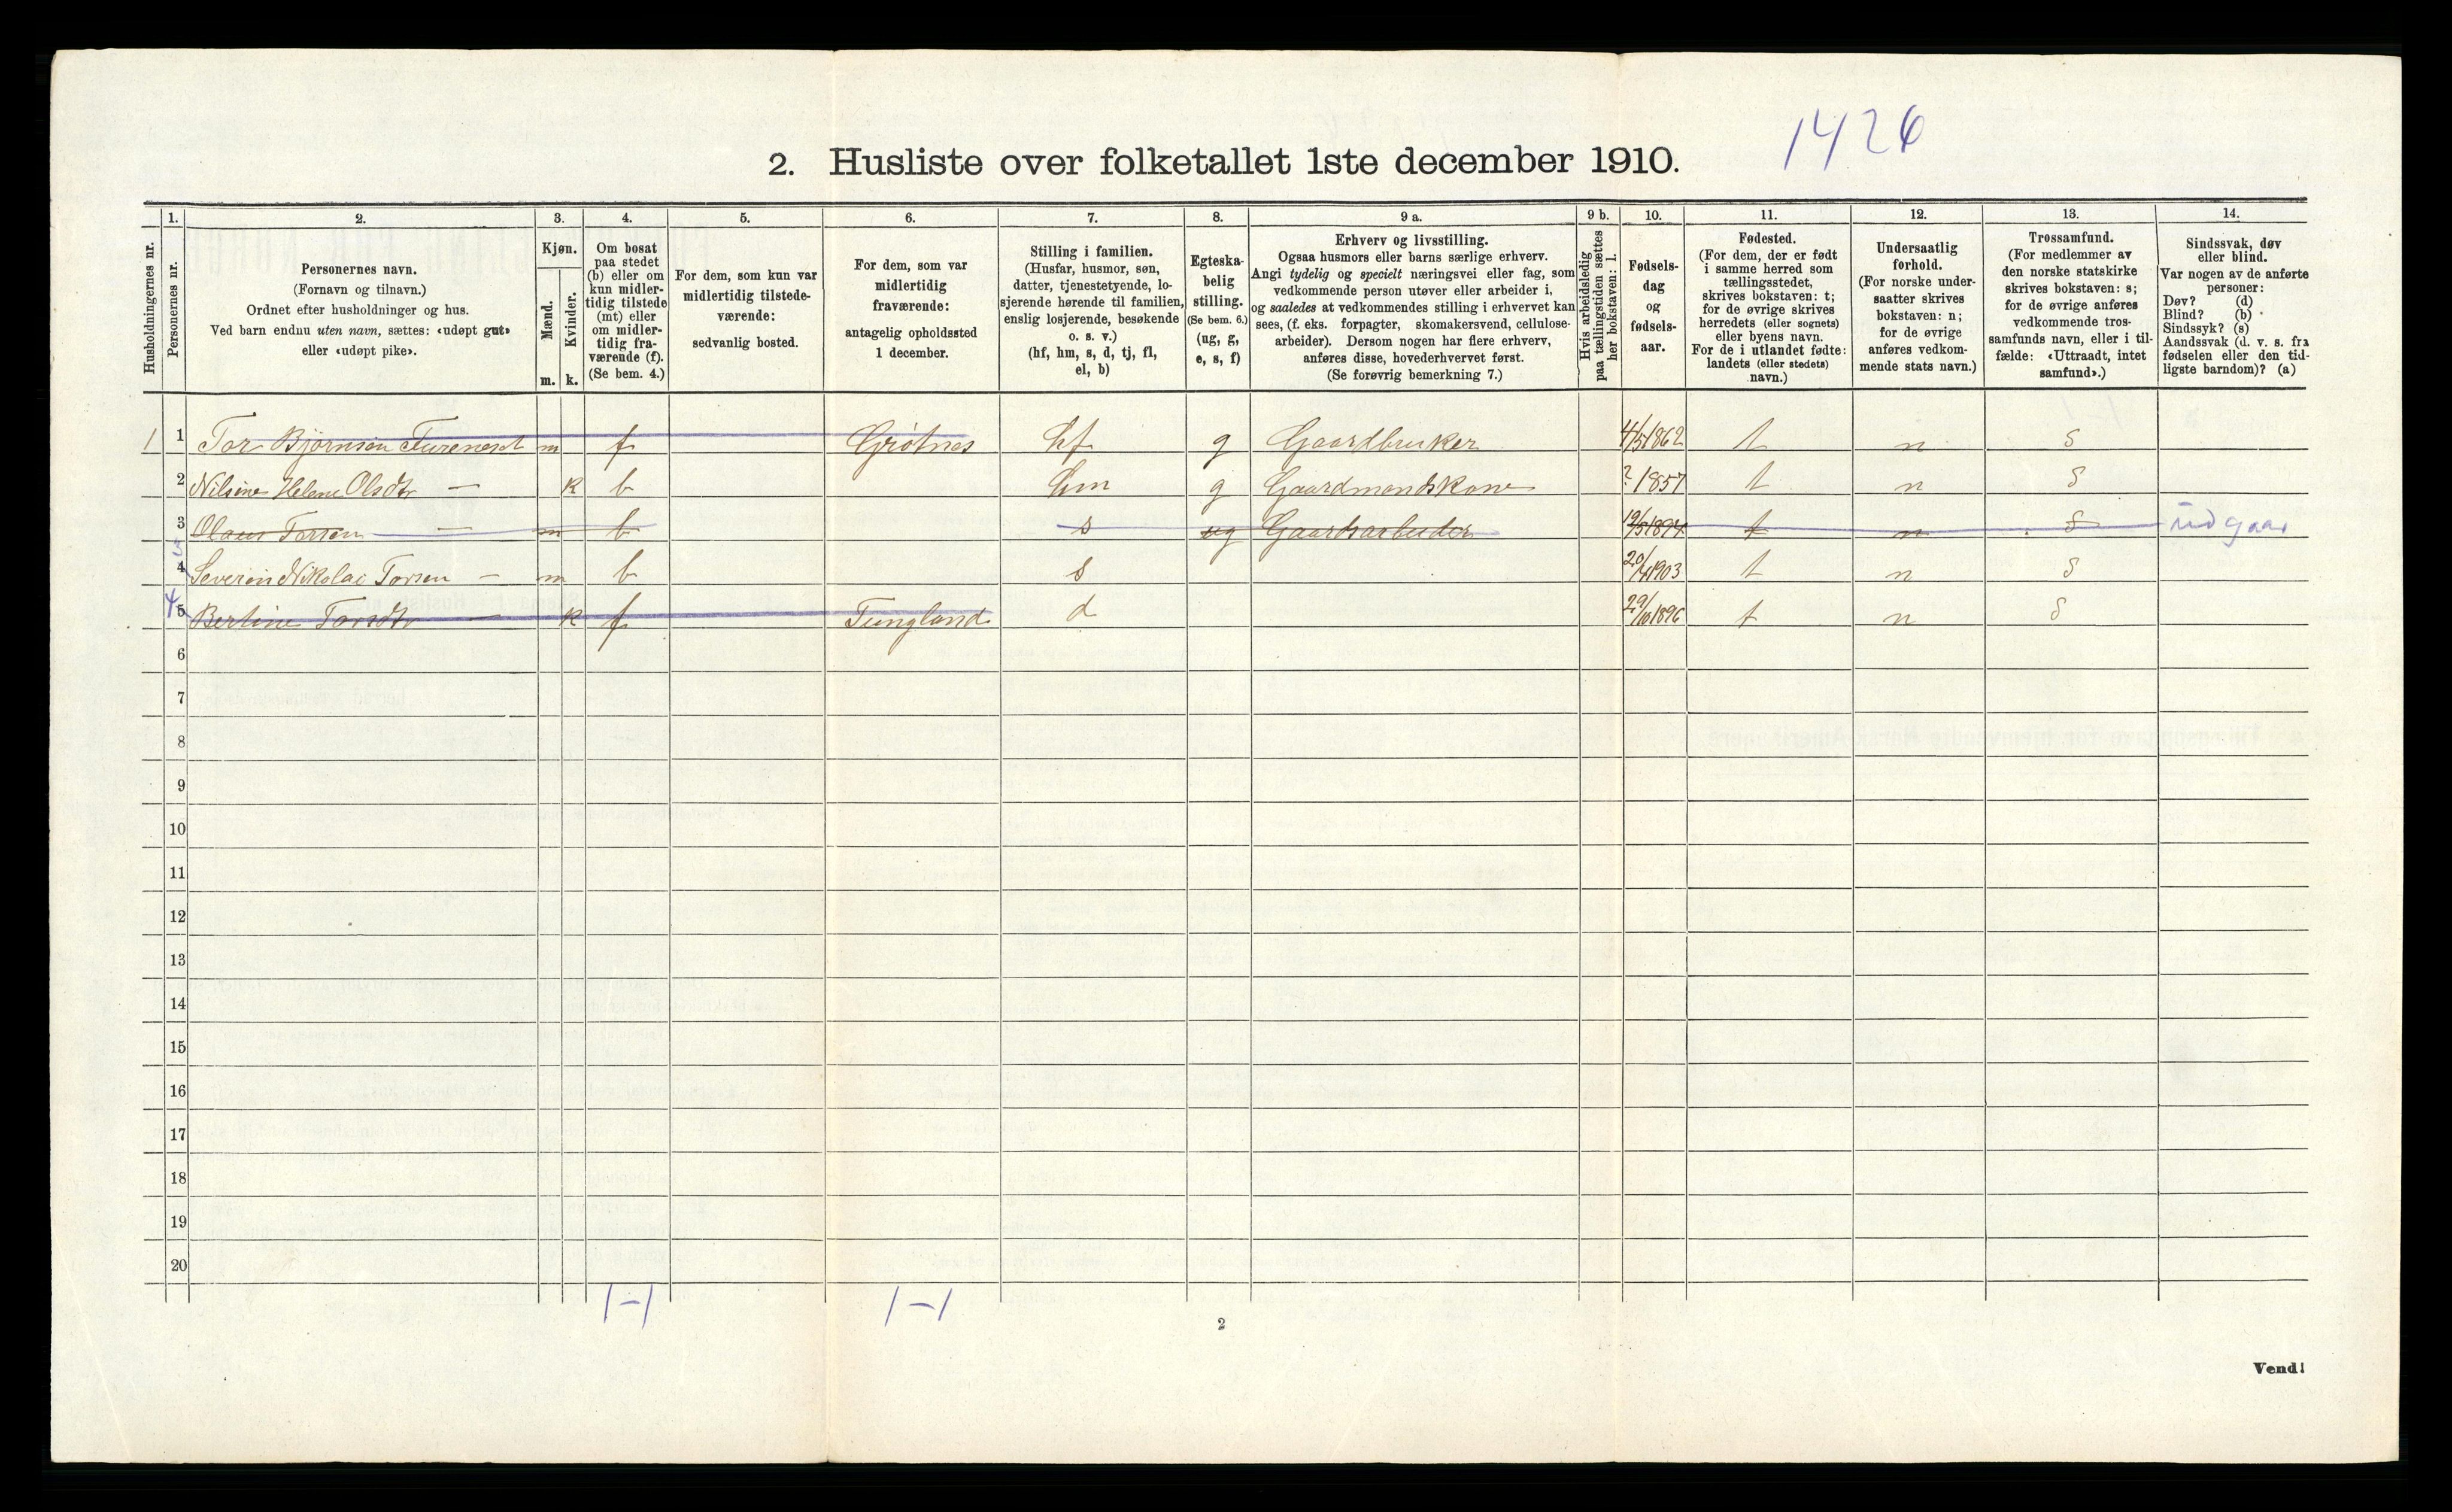 1426
2. Husliste over folketallet 1ste december 1910.
Husholdningernes nr.
1.
Personernes nr.
2.
Personernes navn.
(Fornavn og tilnavn.)
Ordnet efter husholdninger og hus.
Ved barn endnu uten navn, sættes: «udøpt gut»
eller «udøpt pike».
3.
Kjøn.
Mænd.
Kvinder.
m. k.
4.
Om bosat
paa stedet
(b) eller om
kun midler-
tidig tilstede
(mt) eller
om midler-
tidig fra-
værende (f).
(Se bem. 4.)
5.
For dem, som kun var
midlertidig tilstede-
værende:
sedvanlig bosted.
6.
For dem, som var
midlertidig
fraværende:
antagelig opholdssted
1 december.
7.
Stilling i familien.
(Husfar, husmor, søn,
datter, tjenestetyende, lo-
sjerende hørende til familien,
enslig losjerende, besøkende
o. s. v.)
(hf, hm, s, d, tj, fl,
el, b)
8.
Egteska-
belig
stilling.
(Se bem. 6.)
(ug, g,
e, s, f)
9 a.
Erhverv og livsstilling.
Ogsaa husmors eller barns særlige erhverv.
Angi tydelig og specielt næringsvei eller fag, som
vedkommende person utøver eller arbeider i,
og saaledes at vedkommendes stilling i erhvervet kan
sees, (f. eks. forpagter, skomakersvend, cellulose-
arbeider). Dersom nogen har flere erhverv,
anføres disse, hovederhvervet først.
(Se forøvrig bemerkning 7.)
9 b.
Hvis arbeidsledig
paa tællingstiden sættes
her bokstaven: l.
10.
Fødsels-
dag
og
fødsels-
aar.
11.
Fødested.
(For dem, der er født
i samme herred som
tællingsstedet,
skrives bokstaven: t;
for de øvrige skrives
herredets (eller sognets)
eller byens navn.
For de i utlandet fødte:
landets (eller stedets)
navn.)
12.
Undersaatlig
forhold.
(For norske under-
saatter skrives
bokstaven: n;
for de øvrige
anføres vedkom-
mende stats navn.)
13.
Trossamfund.
(For medlemmer av
den norske statskirke
skrives bokstaven: s;
for de øvrige anføres
vedkommende tros-
samfunds navn, eller i til-
fælde: «Uttraadt, intet
samfund».)
14.
Sindssvak, døv
eller blind.
Var nogen av de anførte
personer:
Døv? (d)
Blind? (b)
Sindssyk? (s)
Aandssvak (d. v. s. fra
fødselen eller den tid-
ligste barndom)? (a)
1 1 Tor Bjørnsen Furenest m f Grøtnes hf g Gaardbruker 4/5 1862 t n s
2 Nilsine Helene Olsdtr — k b hm g Gaardmandskone ? 1857 t n s
3 Olaus Torsen — m b s ug Gaardsarbeider 19/5 1894 t n s udgaar
3 4 Severin Nikolai Torsen — m b s 20/4 1903 t n s
4 5 Bertine Torsdtr — k f Tungland d 29/10 1896 t n s
6
7
8
9
10
11
12
13
14
15
16
17
18
19
20
1-1 1-1
2
Vend!